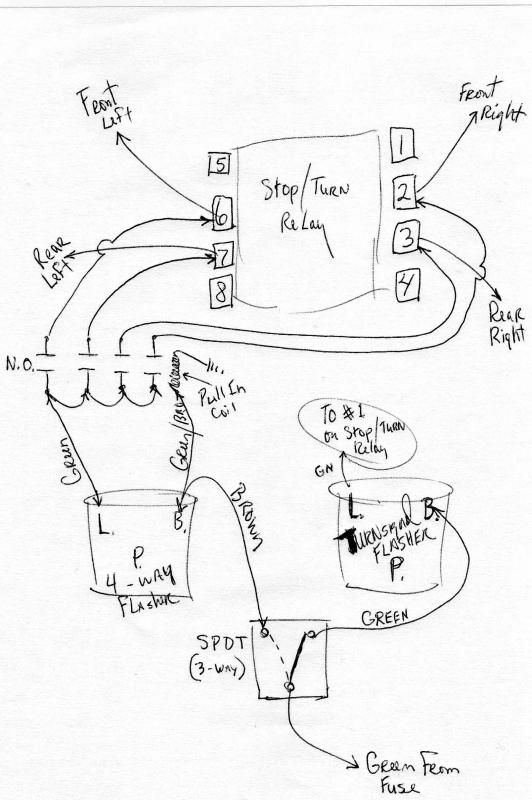 Front
Left
Front
Right
5
6
7
8
Stop/Turn
Relay
1
2
3
4
Rear
Left
Rear
Right
N.O.
Pull In
Coil
Green
Green/
To #1
on Stop/Turn
Relay
GN
L. B.
P.
4-WAY
Flasher
BROWN
L. B.
TURNSignal
FLASHER
P.
GREEN
SPDT
(3-WAY)
Green From
Fuse